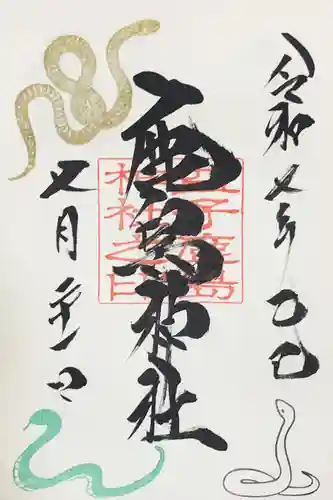 令和七年乙巳
鹿島神社
子鹿島
神社之印
七月二十一日